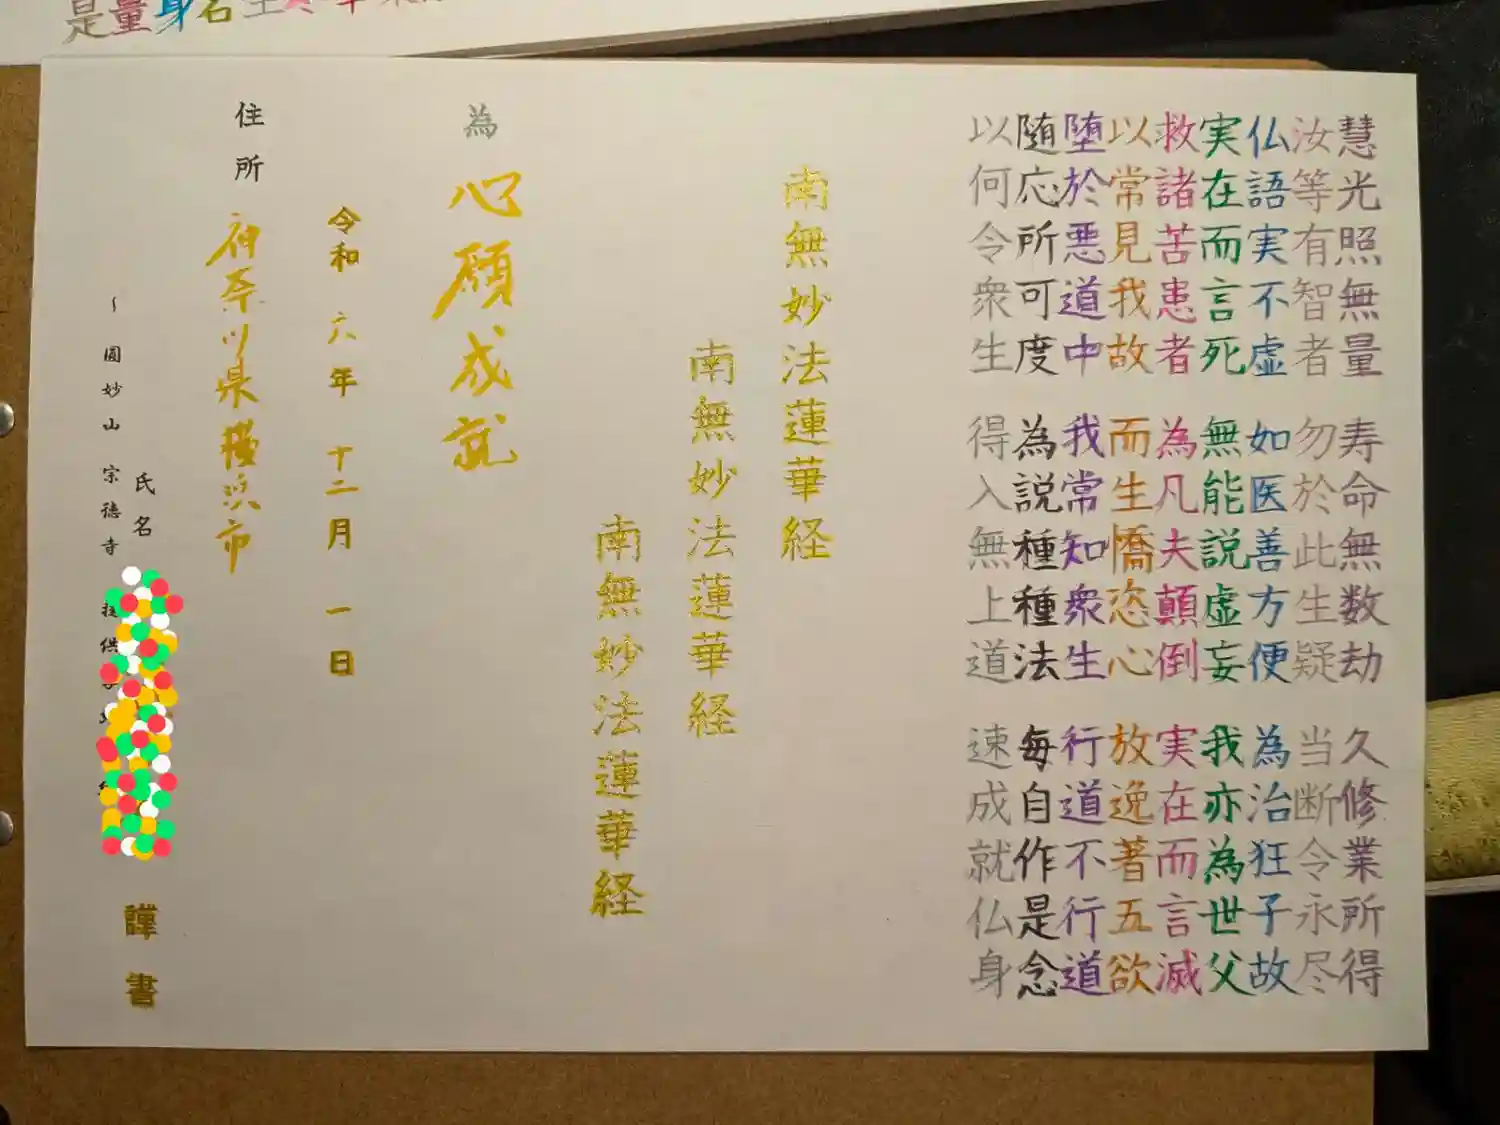 慧光照無量 寿命無数劫 久修業所得
汝等有智者 勿於此生疑 当断令永尽
仏語実不虚 如医善方便 為治狂子故
実在而言死 無能説虚妄 我亦為世父
救諸苦患者 為凡夫顛倒 実在而言滅
以常見我故 而生憍恣心 放逸著五欲
堕於悪道中 我常知衆生 行道不行道
随応所可度 為説種種法 毎自作是念
以何令衆生 得入無上道 速成就仏身
南無妙法蓮華経
南無妙法蓮華経
南無妙法蓮華経
為 心願成就
令和 六年 十二月 一日
住所 神奈川県横浜市
氏名 謹書
~圓妙山 宗徳寺 提供
是量身名生